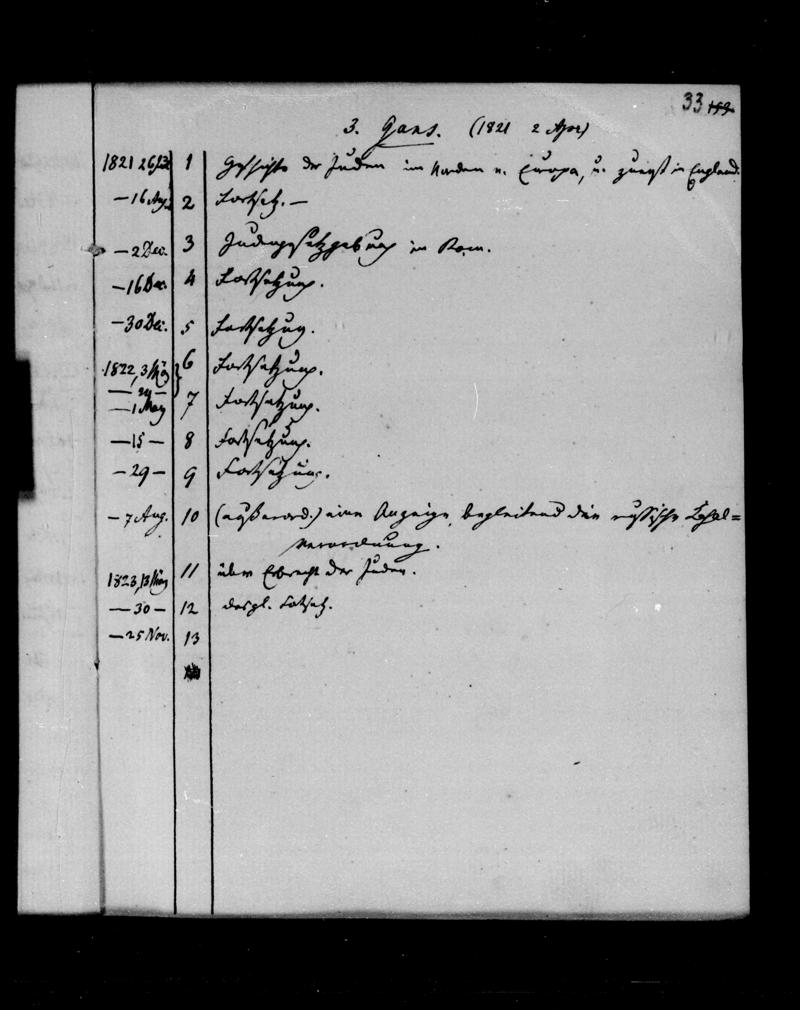 33 159
3. Gans. (1821 2 Apr)
1821 1 Geschichte der Juden im Norden v. Europa, u. zuerst in England.
— 16 Aug. 2 Fortsetz. —
— 2 Dec. 3 Judengesetzgebung in Rom.
— 16 Dec. 4 Fortsetzung.
— 30 Dec. 5 Fortsetzung.
1822, 3 März 6 Fortsetzung.
— 24 —
— 1 May 7 Fortsetzung.
— 15 — 8 Fortsetzung.
— 29 — 9 Fortsetzung.
— 7 Aug. 10 (außerord.) eine Anzeige, begleitend die russische Lokal=
verordnung.
1823, März 11 über Erbrecht der Juden.
— 30 — 12 desgl. Fortsetz.
— 25 Nov. 13